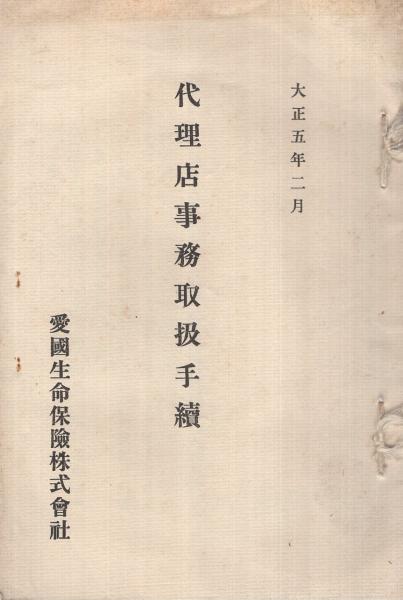 大正五年二月
代理店事務取扱手續
愛國生命保險株式會社